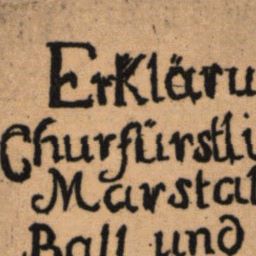 Erkläru
Churfürstli
Marstal
Ball und